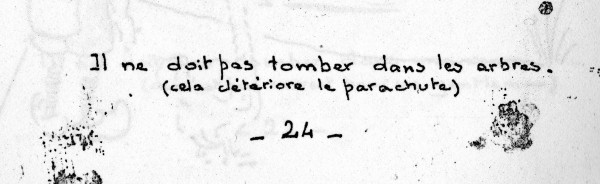 Il ne doit pas tomber dans les arbres.
(cela détériore le parachute)
_ 24 _